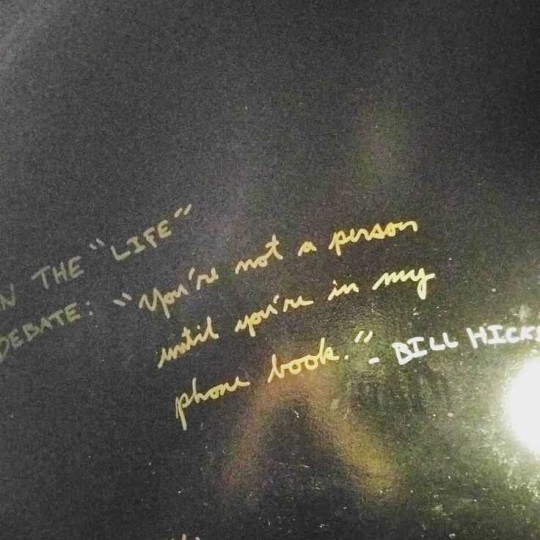 N THE "LIFE"
DEBATE: "You're not a person
until you're in my
phone book." - BILL HICKS